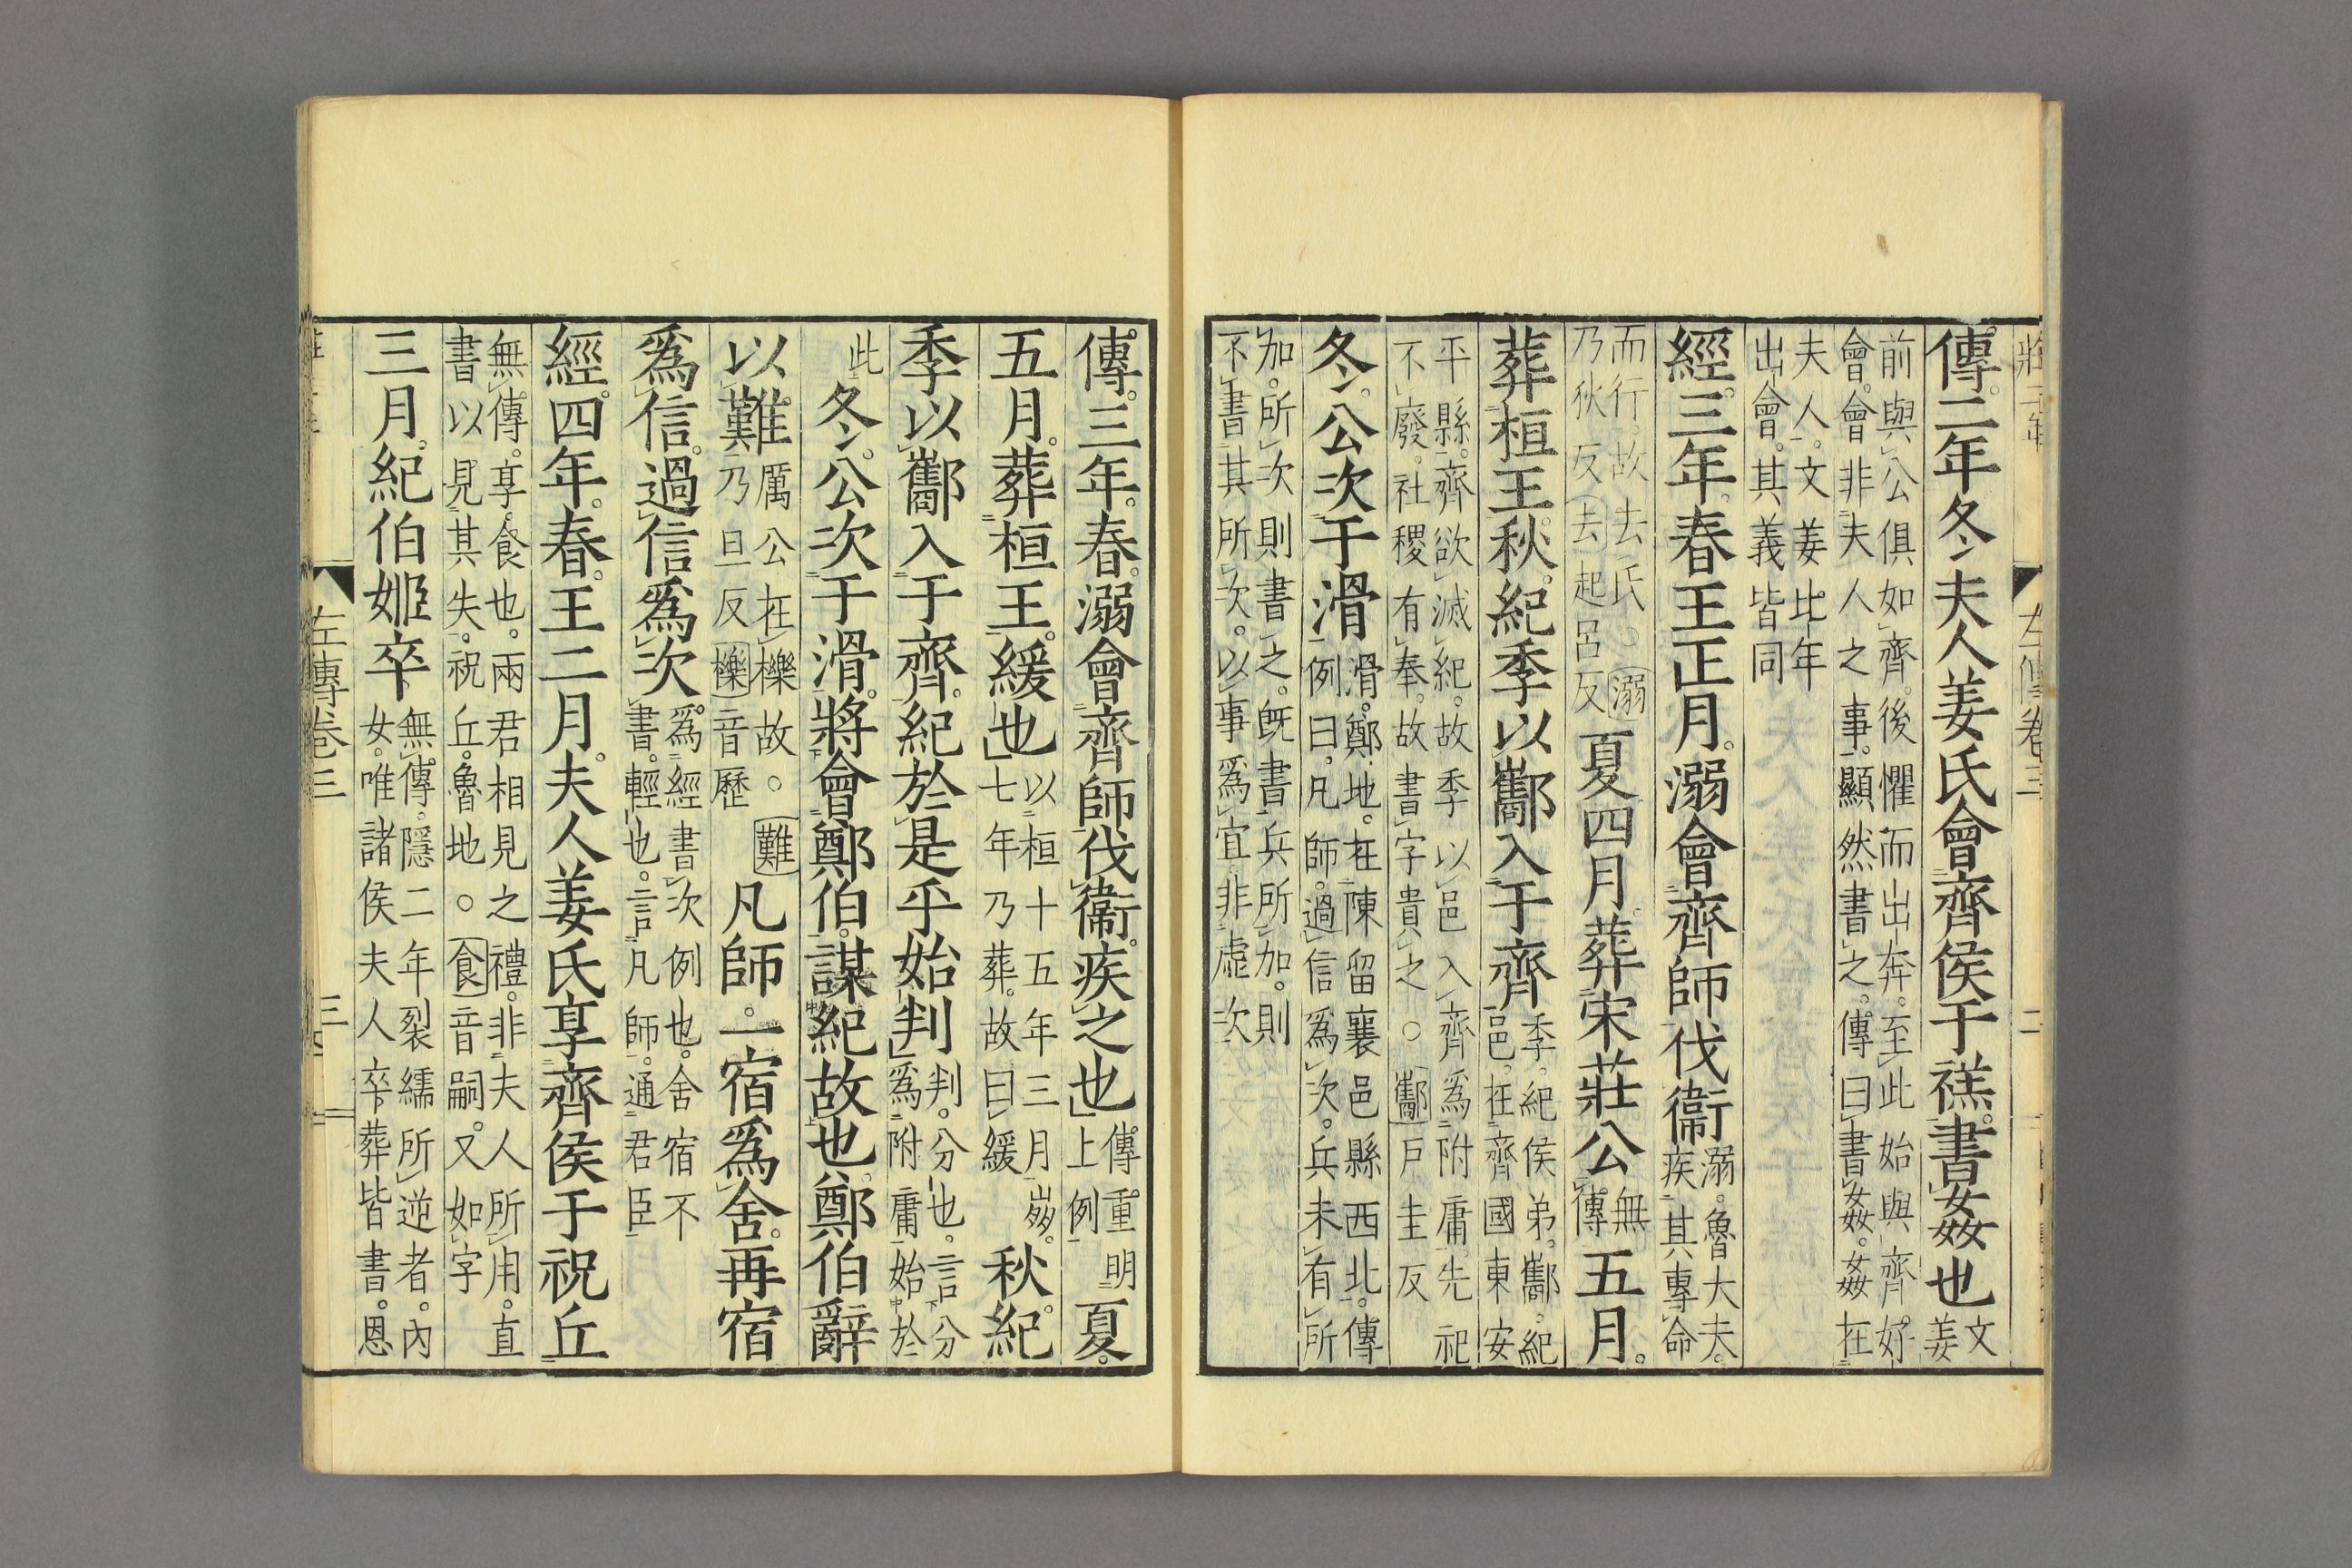 傳。二年冬。夫人姜氏會齊侯于禚。書姦也文姜
前與公俱如齊。後懼而出奔。至此始與齊。好
會。會非夫人之事。顯然書之。傳曰書姦。姦在
夫人。文姜比年
出會。其義皆同
經。三年。春王正月。溺會齊師伐衞溺。魯大夫。疾其專命
而行。故去氏。○溺
乃狄反去起呂反夏四月。葬宋莊公。無傳五月。
葬桓王。秋。紀季以酅入于齊季。紀侯弟。酅。紀邑。在齊國東安
平縣。齊欲滅紀。故季以邑入齊爲附庸。先祀
不廢。社稷有奉。故書字貴之。○酅戶圭反
冬。公次于滑滑。鄭地。在陳留襄邑縣西北。傳例曰。凡師。過信爲次。兵未有所
加。所次則書之。旣書兵所加。則
不書其所次。以事爲宜。非虛次
莊二年
左傳卷三
二
傳。三年。春。溺會齊師伐衞。疾之也傳。重明上例夏。
五月。葬桓王。緩也以桓十五年三月崩。七年乃葬。故曰緩秋。紀
季以酅入于齊。紀於是乎始判判。分也。言分爲附庸始於
此冬。公次于滑。將會鄭伯。謀紀故也。鄭伯辭
以難厲公在櫟故。○難乃旦反櫟音歷凡師。一宿爲舍。再宿
爲信。過信爲次。爲經書次例也。舍宿不書。輕也。言凡師。通君臣
經。四年。春。王二月。夫人姜氏享齊侯于祝丘
無傳。享。食也。兩君相見之禮。非夫人所用。直
書以見其失。祝丘。魯地。○食音嗣。又如字
三月。紀伯姬卒無傳。隱二年裂繻所逆者。內女。唯諸侯夫人卒葬皆書。恩
左傳卷三
三